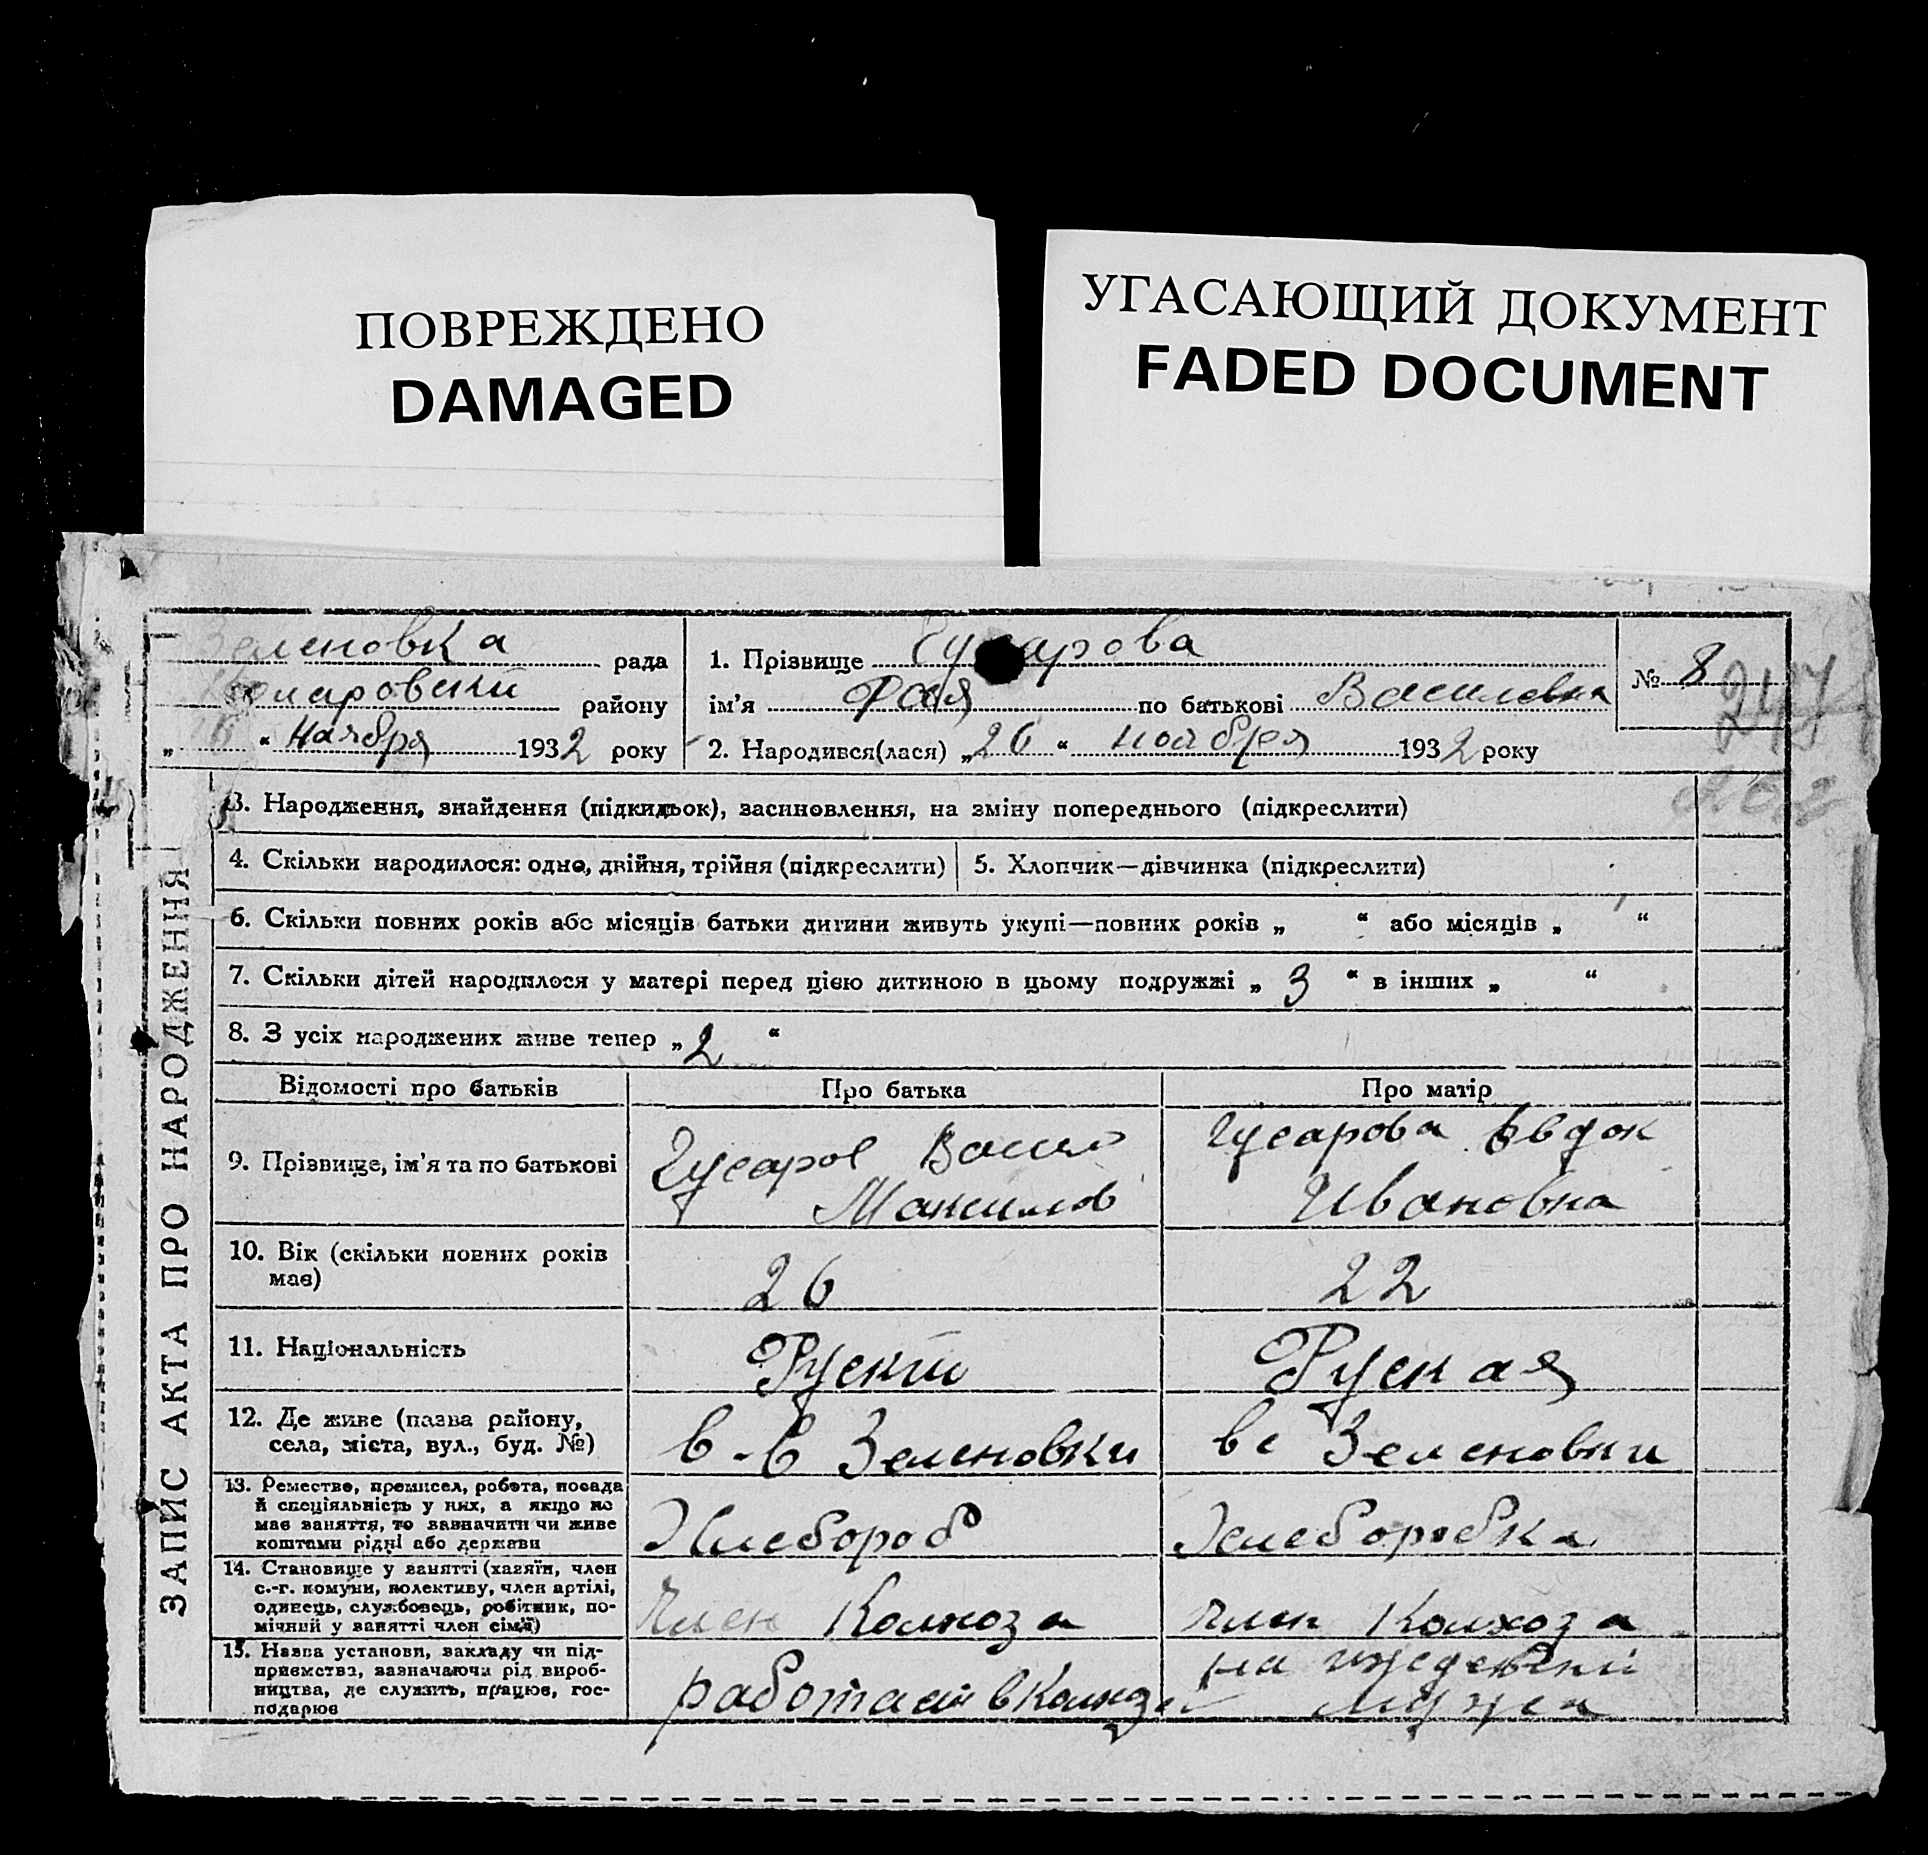 ПОВРЕЖДЕНО
DAMAGED
УГАСАЮЩИЙ ДОКУМЕНТ
FADED DOCUMENT
Зеленовка рада
районy
„ “ Ноября 1932 року
1. Прізвище Гусарова
ім’я Фая по батькові Василевна
2. Народився(лася) „26“ ноября 1932 року
№ 8
247
3. Народження, знайдення (підкидьок), засиновлення, на зміну попереднього (підкреслити)
4. Скільки народилося: одно, двійня, трійня (підкреслити)
5. Хлопчик—дівчинка (підкреслити)
6. Скільки повних років або місяців батьки дитини живуть укупі—повних років „ “ або місяців „ “
7. Скільки дітей народилося у матері перед цією дитиною в цьому подружжі „ 3 “ в інших „ “
8. З усіх народжених живе тепер „ 2 “
ЗАПИС АКТА ПРО НАРОДЖЕННЯ
Відомості про батьків
Про батька
Про матір
9. Прізвище, ім’я та по батькові
Гусаров Васил
Максимов
Гусарова Евдок
Ивановна
10. Вік (скільки повних років
має)
26
22
11. Національність
Руский
Руская
12. Де живе (назва району,
села, міста, вул., буд. №)
Зеленовки
вс Зеленовки
13. Ремество, промисел, робота, посада
й спеціяльність у них, а якщо не
має заняття, то зазначити чи живе
коштами рідні або держави
Хлебороб
Хлеборобка
14. Становище у занятті (хазяїн, член
с.-г. комуни, колективу, член артілі,
одинець, службовець, робітник, по-
мічний у занятті член сім’ї)
член Колхоза
член Колхоза
15. Назва установи, закладу чи під-
приємства, зазначаючи рід вироб-
ництва, де служить, працює, гос-
подарює
работает в Колхозе
на иждевении
мужа